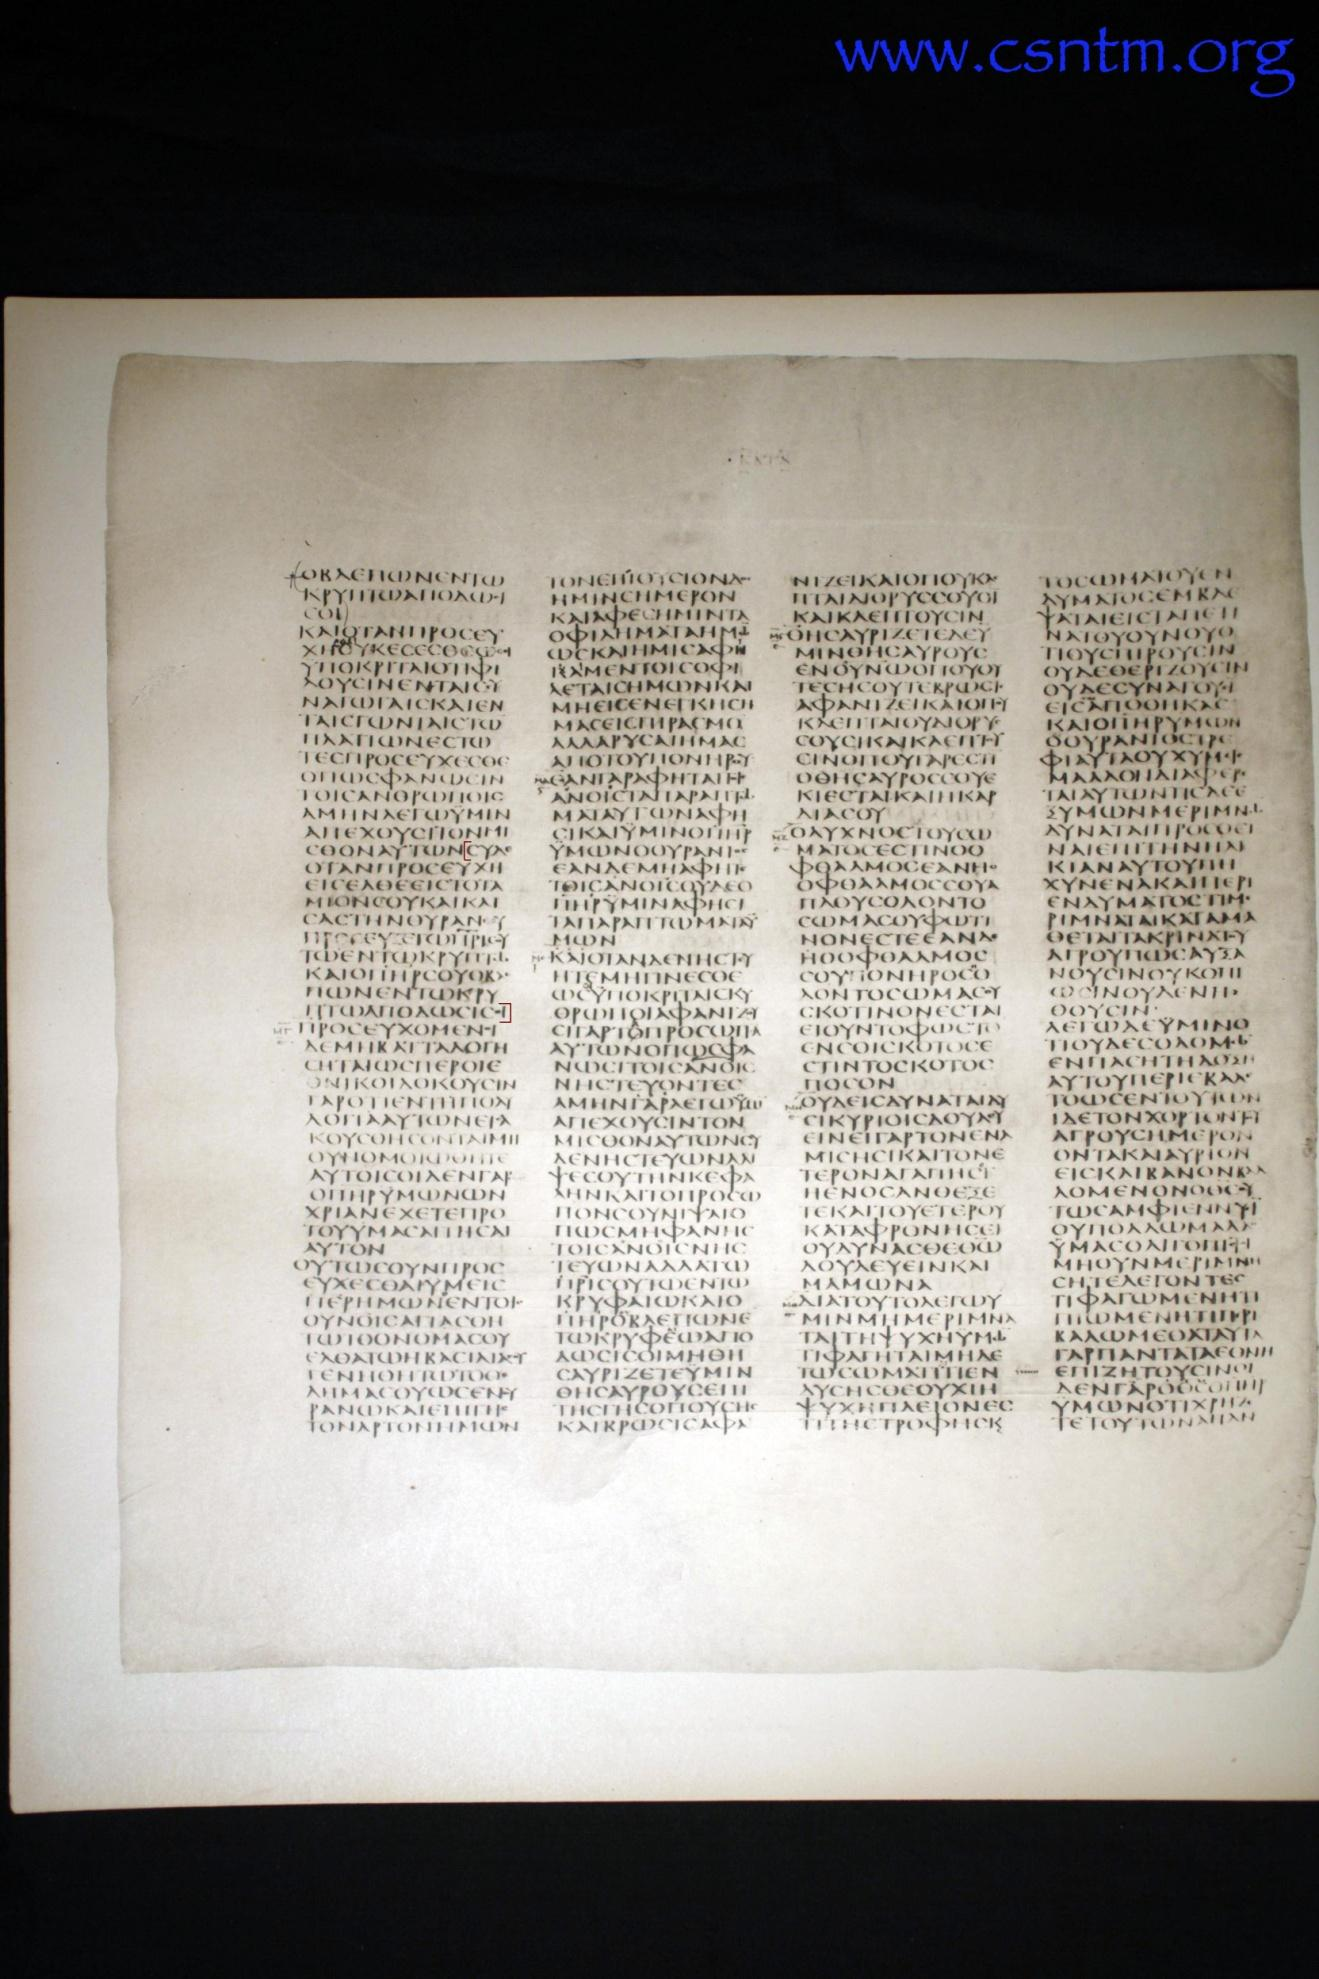 www.csntm.org
ΟΒΛΕΠΩΝΕΝΤΩ
ΚΡΥΠΤΩΑΠΟΔΩϹΙ
ϹΟΙ
ΚΑΙΟΤΑΝΠΡΟϹΕΥ
ΥΠΟΚΡΙΤΑΙΟΤΙΦΙ
ΛΟΥϹΙΝΕΝΤΑΙϹΥ
ΝΑΓΩΓΑΙϹΚΑΙΕΝ
ΤΑΙϹΓΩΝΙΑΙϹΤΩ
ΠΛΑΤΙΩΝΕϹΤΩ
ΤΕϹΠΡΟϹΕΥΧΕϹΘΕ
ΟΠΩϹΦΑΝΩϹΙΝ
ΤΟΙϹΑΝΘΡΩΠΟΙϹ
ΑΜΗΝΛΕΓΩΫΜΙΝ
ΑΠΕΧΟΥϹΙΤΟΝΜΙ
ϹΘΟΝΑΥΤΩΝϹΥΔΕ
ΟΤΑΝΠΡΟϹΕΥΧΗ
ΕΙϹΕΛΘΕΕΙϹΤΟΤΑ
ΜΙΟΝϹΟΥΚΑΙΚΛΙ
ϹΑϹΤΗΝΘΥΡΑΝϹΟΥ
ΠΡΟϹΕΥΞΕΤΩΠΡΙϹΟΥ
ΤΩΕΝΤΩΚΡΥΠΤΩ
ΚΑΙΟΠΗΡϹΟΥΟΒΛΕ
ΠΩΝΕΝΤΩΚΡΥ
ΠΤΩΑΠΟΔΩϹΙϹΟΙ
ΠΡΟϹΕΥΧΟΜΕΝΟΙ
ΔΕΜΗΒΑΤΤΑΛΟΓΗ
ϹΗΤΑΙΩϹΠΕΡΟΙΕ
ΘΝΙΚΟΙΔΟΚΟΥϹΙΝ
ΓΑΡΟΤΙΕΝΤΗΠΟΛΥ
ΛΟΓΙΑΑΥΤΩΝΕΙϹΑ
ΚΟΥϹΘΗϹΟΝΤΑΙΜΗ
ΟΥΝΟΜΟΙΩΘΗΤΕ
ΑΥΤΟΙϹΟΙΔΕΝΓΑΡ
ΟΠΗΡΥΜΩΝΩΝ
ΧΡΙΑΝΕΧΕΤΕΠΡΟ
ΤΟΥΥΜΑϹΑΙΤΗϹΑΙ
ΑΥΤΟΝ
ΟΥΤΩϹΟΥΝΠΡΟϹ
ΕΥΧΕϹΘΑΙΥΜΕΙϹ
ΠΕΡΗΜΩΝΕΝΤΟΙϹ
ΟΥΝΟΙϹΑΓΙΑϹΘΗ
ΤΩΤΟΟΝΟΜΑϹΟΥ
ΕΛΘΑΤΩΗΒΑϹΙΛΙΑϹΟΥ
ΓΕΝΗΘΗΤΩΤΟΘΕ
ΛΗΜΑϹΟΥΩϹΕΝΟΥ
ΡΑΝΩΚΑΙΕΠΙΓΗϹ
ΤΟΝΑΡΤΟΝΗΜΩΝ
ΤΟΝΕΠΙΟΥϹΙΟΝΔΟϹ
ΗΜΙΝϹΗΜΕΡΟΝ
ΚΑΙΑΦΕϹΗΜΙΝΤΑ
ΟΦΙΛΗΜΑΤΑΗΜΩ
ΩϹΚΑΙΗΜΙϹΑΦΗ
ΚΑΜΕΝΤΟΙϹΟΦΙ
ΛΕΤΑΙϹΗΜΩΝΚΑΙ
ΜΗΕΙϹΕΝΕΓΚΗϹΗ
ΜΑϹΕΙϹΠΙΡΑϹΜΟ
ΑΛΛΑΡΥϹΑΙΗΜΑϹ
ΑΠΟΤΟΥΠΟΝΗΡΟΥ
ΕΑΝΓΑΡΑΦΗΤΑΙΤΟΙϹ
ΑΝΟΙϹΤΑΠΑΡΑΠΤΩ
ΜΑΤΑΑΥΤΩΝΑΦΗ
ϹΙΚΑΙΫΜΙΝΟΠΗΡ
ΥΜΩΝΟΟΥΡΑΝΙΟϹ
ΕΑΝΔΕΜΗΑΦΗΤΕ
ΤΟΙϹΑΝΟΙϹΟΥΔΕΟ
ΠΗΡΥΜΙΝΑΦΗϹΙ
ΤΑΠΑΡΑΠΤΩΜΑΤΑΫ
ΜΩΝ
ΚΑΙΟΤΑΝΔΕΝΗϹΤΕΥ
ΗΤΕΜΗΓΙΝΕϹΘΕ
ΩϹΥΠΟΚΡΙΤΑΙϹΚΥ
ΘΡΩΠΟΙΑΦΑΝΙΖΟΥ
ϹΙΓΑΡΤΟΠΡΟϹΩΠΟ
ΑΥΤΩΝΟΠΩϹΦΑ
ΝΩϹΙΤΟΙϹΑΝΟΙϹ
ΝΗϹΤΕΥΟΝΤΕϹ
ΑΜΗΝΓΑΡΛΕΓΩΫΜΙ
ΑΠΕΧΟΥϹΙΝΤΟΝ
ΜΙϹΘΟΝΑΥΤΩΝϹΥ
ΔΕΝΗϹΤΕΥΩΝΑΛΙ
ΨΕϹΟΥΤΗΝΚΕΦΑ
ΛΗΝΚΑΙΤΟΠΡΟϹΩ
ΠΟΝϹΟΥΝΙΨΑΙΟ
ΠΩϹΜΗΦΑΝΗϹ
ΤΟΙϹΑΝΟΙϹΝΗϹ
ΤΕΥΩΝΑΛΛΑΤΩ
ΠΡΙϹΟΥΤΩΕΝΤΩ
ΚΡΥΦΑΙΩΚΑΙΟ
ΠΗΡΟΒΛΕΠΩΝΕ
ΤΩΚΡΥΦΕΩΑΠΟ
ΔΩϹΙϹΟΙΜΗΘΗ
ϹΑΥΡΙΖΕΤΕΥΜΙΝ
ΘΗϹΑΥΡΟΥϹΕΠΙ
ΤΗϹΓΗϹΟΠΟΥϹΗϹ
ΚΑΙΒΡΩϹΙϹΑΦΑ
ΝΙΖΕΙΚΑΙΟΠΟΥΚΛΕ
ΠΤΑΙΔΙΟΡΥϹϹΟΥϹΙ
ΚΑΙΚΛΕΠΤΟΥϹΙΝ
ΘΗϹΑΥΡΙΖΕΤΕΔΕΥ
ΜΙΝΘΗϹΑΥΡΟΥϹ
ΕΝΟΥΝΩΟΠΟΥΟΥ
ΤΕϹΗϹΟΥΤΕΒΡΩϹΙϹ
ΑΦΑΝΙΖΕΙΚΑΙΟΠΟΥ
ΚΛΕΠΤΑΙΟΥΔΙΟΡΥϹ
ϹΟΥϹΙΚΑΙΚΛΕΠΤΟΥ
ϹΙΝΟΠΟΥΓΑΡΕϹΤΙ
ΟΘΗϹΑΥΡΟϹϹΟΥΕ
ΚΙΕϹΤΑΙΚΑΙΗΚΑΡ
ΔΙΑϹΟΥ
ΟΛΥΧΝΟϹΤΟΥϹΩ
ΜΑΤΟϹΕϹΤΙΝΟΟ
ΦΘΑΛΜΟϹΕΑΝΗ
ΟΦΘΑΛΜΟϹϹΟΥΑ
ΠΛΟΥϹΟΛΟΝΤΟ
ϹΩΜΑϹΟΥΦΩΤΙ
ΝΟΝΕϹΤΕΕΑΝΔΕ
ΗΟΟΦΘΑΛΜΟϹ
ϹΟΥΠΟΝΗΡΟϹΟ
ΛΟΝΤΟϹΩΜΑϹΟΥ
ϹΚΟΤΙΝΟΝΕϹΤΑΙ
ΕΙΟΥΝΤΟΦΩϹΤΟ
ΕΝϹΟΙϹΚΟΤΟϹΕ
ϹΤΙΝΤΟϹΚΟΤΟϹ
ΠΟϹΟΝ
ΟΥΔΕΙϹΔΥΝΑΤΑΙΔΥ
ϹΙΚΥΡΙΟΙϹΔΟΥΛΕΥ
ΕΙΝΕΙΓΑΡΤΟΝΕΝΑ
ΜΙϹΗϹΙΚΑΙΤΟΝΕ
ΤΕΡΟΝΑΓΑΠΗϹΙ
ΗΕΝΟϹΑΝΘΕΞΕ
ΤΕΚΑΙΤΟΥΕΤΕΡΟΥ
ΚΑΤΑΦΡΟΝΗϹΕΙ
ΟΥΔΥΝΑϹΘΕΘΩ
ΔΟΥΛΕΥΕΙΝΚΑΙ
ΜΑΜΩΝΑ
ΔΙΑΤΟΥΤΟΛΕΓΩΥ
ΜΙΝΜΗΜΕΡΙΜΝΑ
ΤΑΙΤΗΨΥΧΗΥΜΩ
ΤΙΦΑΓΗΤΑΙΜΗΔΕ
ΤΩϹΩΜΑΤΙΤΙΕΝ
ΔΥϹΗϹΘΕΟΥΧΙΗ
ΨΥΧΗΠΛΕΙΟΝΕϹ
ΤΙΤΗϹΤΡΟΦΗϹΚ
ΤΟϹΩΜΑΤΟΥΕΝ
ΔΥΜΑΤΟϹΕΜΒΛΕ
ΨΑΤΑΙΕΙϹΤΑΠΕΤΙ
ΝΑΤΟΥΟΥΝΟΥΟ
ΤΙΟΥϹΠΙΡΟΥϹΙΝ
ΟΥΔΕΘΕΡΙΖΟΥϹΙΝ
ΟΥΔΕϹΥΝΑΓΟΥϹΙ
ΕΙϹΑΠΟΘΗΚΑϹ
ΚΑΙΟΠΗΡΥΜΩΝ
ΟΟΥΡΑΝΙΟϹΤΡΕ
ΦΙΑΥΤΑΟΥΧΥΜΙϹ
ΜΑΛΛΟΝΔΙΑΦΕΡΕ
ΤΑΙΑΥΤΩΝΤΙϹΔΕΕ
ΞΥΜΩΝΜΕΡΙΜΝΩ
ΔΥΝΑΤΑΙΠΡΟϹΘΕΙ
ΝΑΙΕΠΙΤΗΝΗΛΙ
ΚΙΑΝΑΥΤΟΥΠΗ
ΧΥΝΕΝΑΚΑΙΠΕΡΙ
ΕΝΔΥΜΑΤΟϹΤΙΜΕ
ΡΙΜΝΑΤΑΙΚΑΤΑΜΑ
ΘΕΤΑΙΤΑΚΡΙΝΑΤΟΥ
ΑΓΡΟΥΠΩϹΑΥΞΑ
ΝΟΥϹΙΝΟΥΚΟΠΙ
ΩϹΙΝΟΥΔΕΝΗ
ΘΟΥϹΙΝ
ΛΕΓΩΔΕΫΜΙΝΟ
ΤΙΟΥΔΕϹΟΛΟΜΩ
ΕΝΠΑϹΗΤΗΔΟΞΗ
ΑΥΤΟΥΠΕΡΙΕΒΑΛΕ
ΤΟΩϹΕΝΤΟΥΤΩΝ
ΙΔΕΤΟΝΧΟΡΤΟΝΤΟΥ
ΑΓΡΟΥϹΗΜΕΡΟΝ
ΟΝΤΑΚΑΙΑΥΡΙΟΝ
ΕΙϹΚΛΙΒΑΝΟΝΒΑ
ΛΟΜΕΝΟΝΟΘϹΟΥ
ΤΩϹΑΜΦΙΕΝΝΥΙ
ΟΥΠΟΛΛΩΜΑΛΛΟ
ΥΜΑϹΟΛΙΓΟΠΙϹΤΟΙ
ΜΗΟΥΝΜΕΡΙΜΝΗ
ϹΗΤΕΛΕΓΟΝΤΕϹ
ΤΙΦΑΓΩΜΕΝΗΤΙ
ΠΙΩΜΕΝΗΤΙΠΕΡΙ
ΒΑΛΩΜΕΘΑΤΑΥΤΑ
ΓΑΡΠΑΝΤΑΤΑΕΘΝΗ
ΕΠΙΖΗΤΟΥϹΙΝΟΙ
ΔΕΝΓΑΡΟΘϹΟΠΗΡ
ΥΜΩΝΟΤΙΧΡΗΖΕ
ΤΕΤΟΥΤΩΝΑΠΑΝ